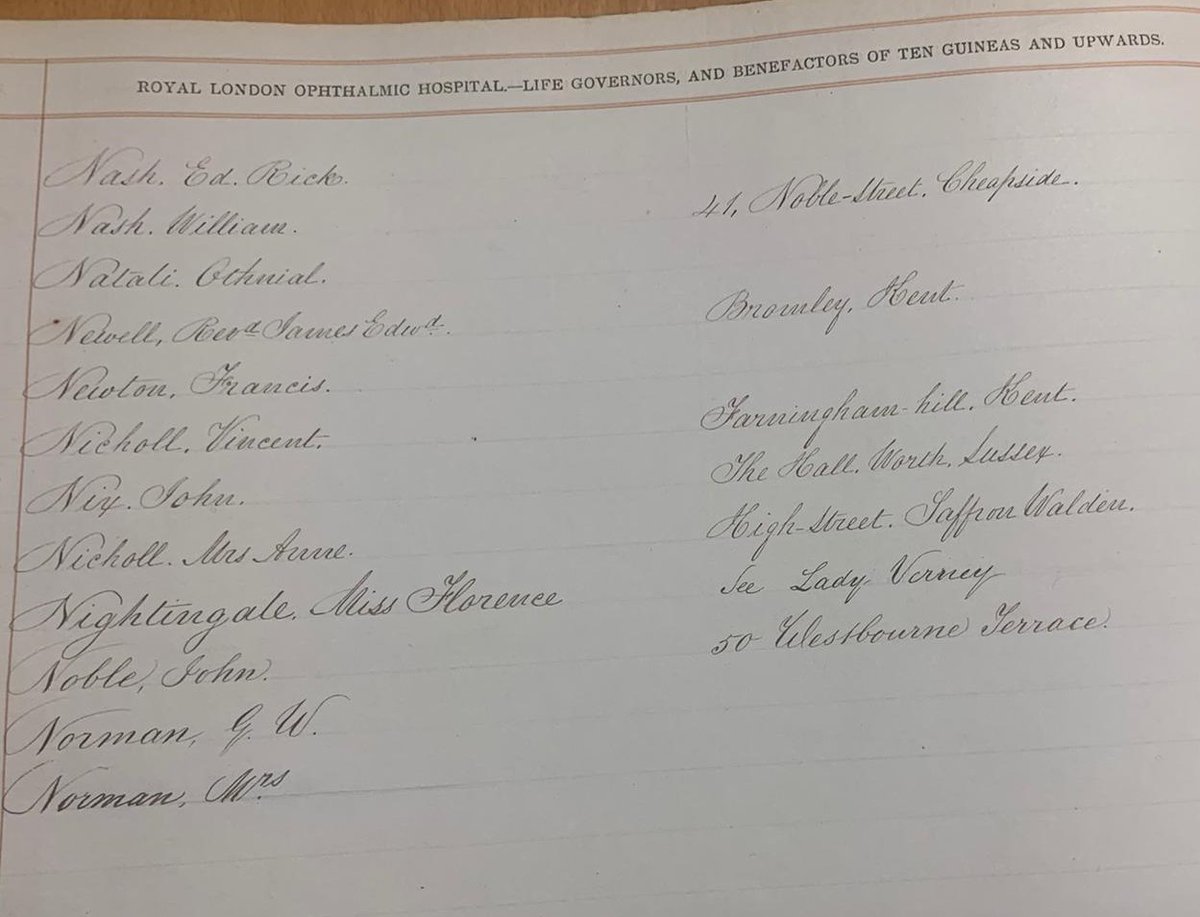 ROYAL LONDON OPHTHALMIC HOSPITAL.—LIFE GOVERNORS, AND BENEFACTORS OF TEN GUINEAS AND UPWARDS.
Nash. Ed. Rick.
Nash. William. 41, Noble-street. Cheapside.
Natali. Othnial.
Newell, Revd James Edwd. Bromley, Kent.
Newton, Francis.
Nicholl, Vincent. Farningham-hill, Kent.
Nix. John. The Hall, Worth, Sussex.
Nicholl. Mrs Anne. High-street. Saffron Walden.
Nightingale. Miss Florence See Lady Verney
Noble, John. 50 Westbourne Terrace.
Norman, G. W.
Norman, Mrs